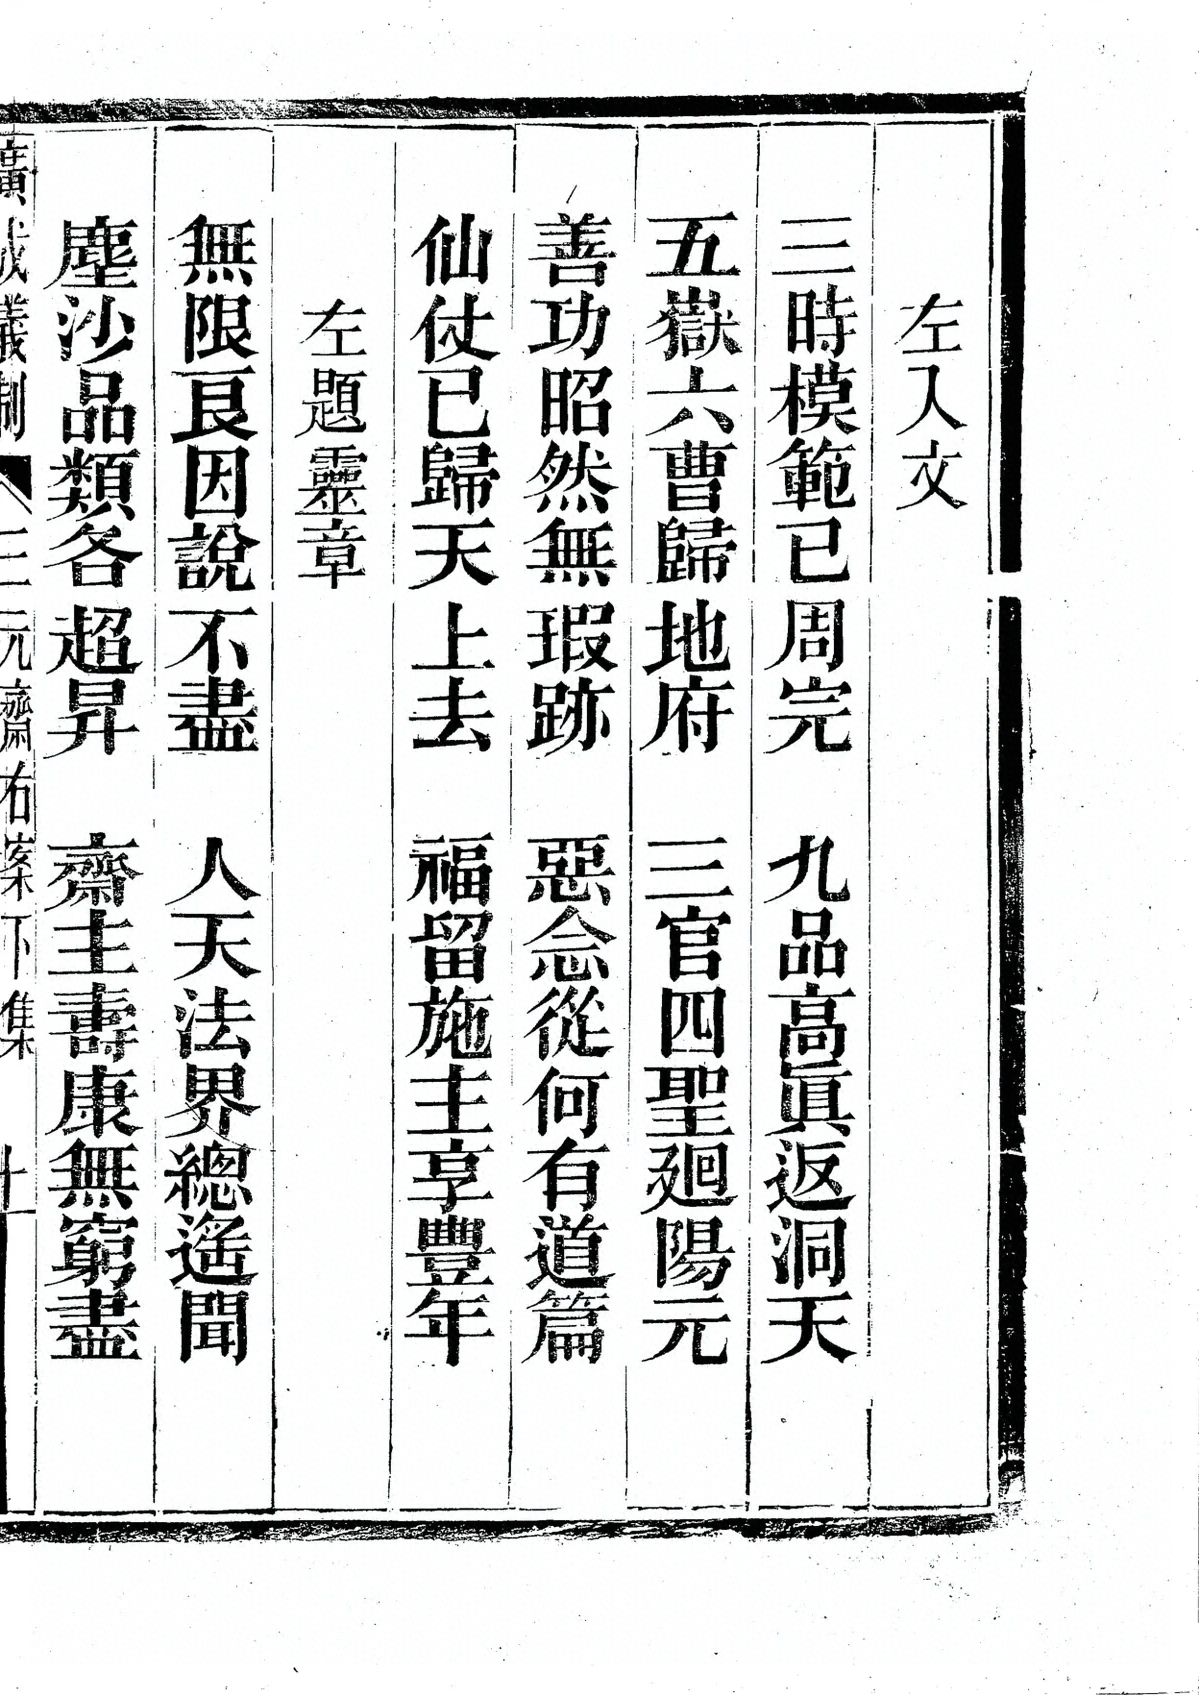 左入文
三時模範已周完　九品高眞返洞天
五嶽六曹歸地府　三官四聖廻陽元
善功昭然無瑕跡　惡念從何有道篇
仙仗已歸天上去　福留施主享豐年
左題靈章
無限良因說不盡　人天法界總遙聞
塵沙品類各超昇　齋主壽康無窮盡
廣成儀制　三元齋右案下集　十一